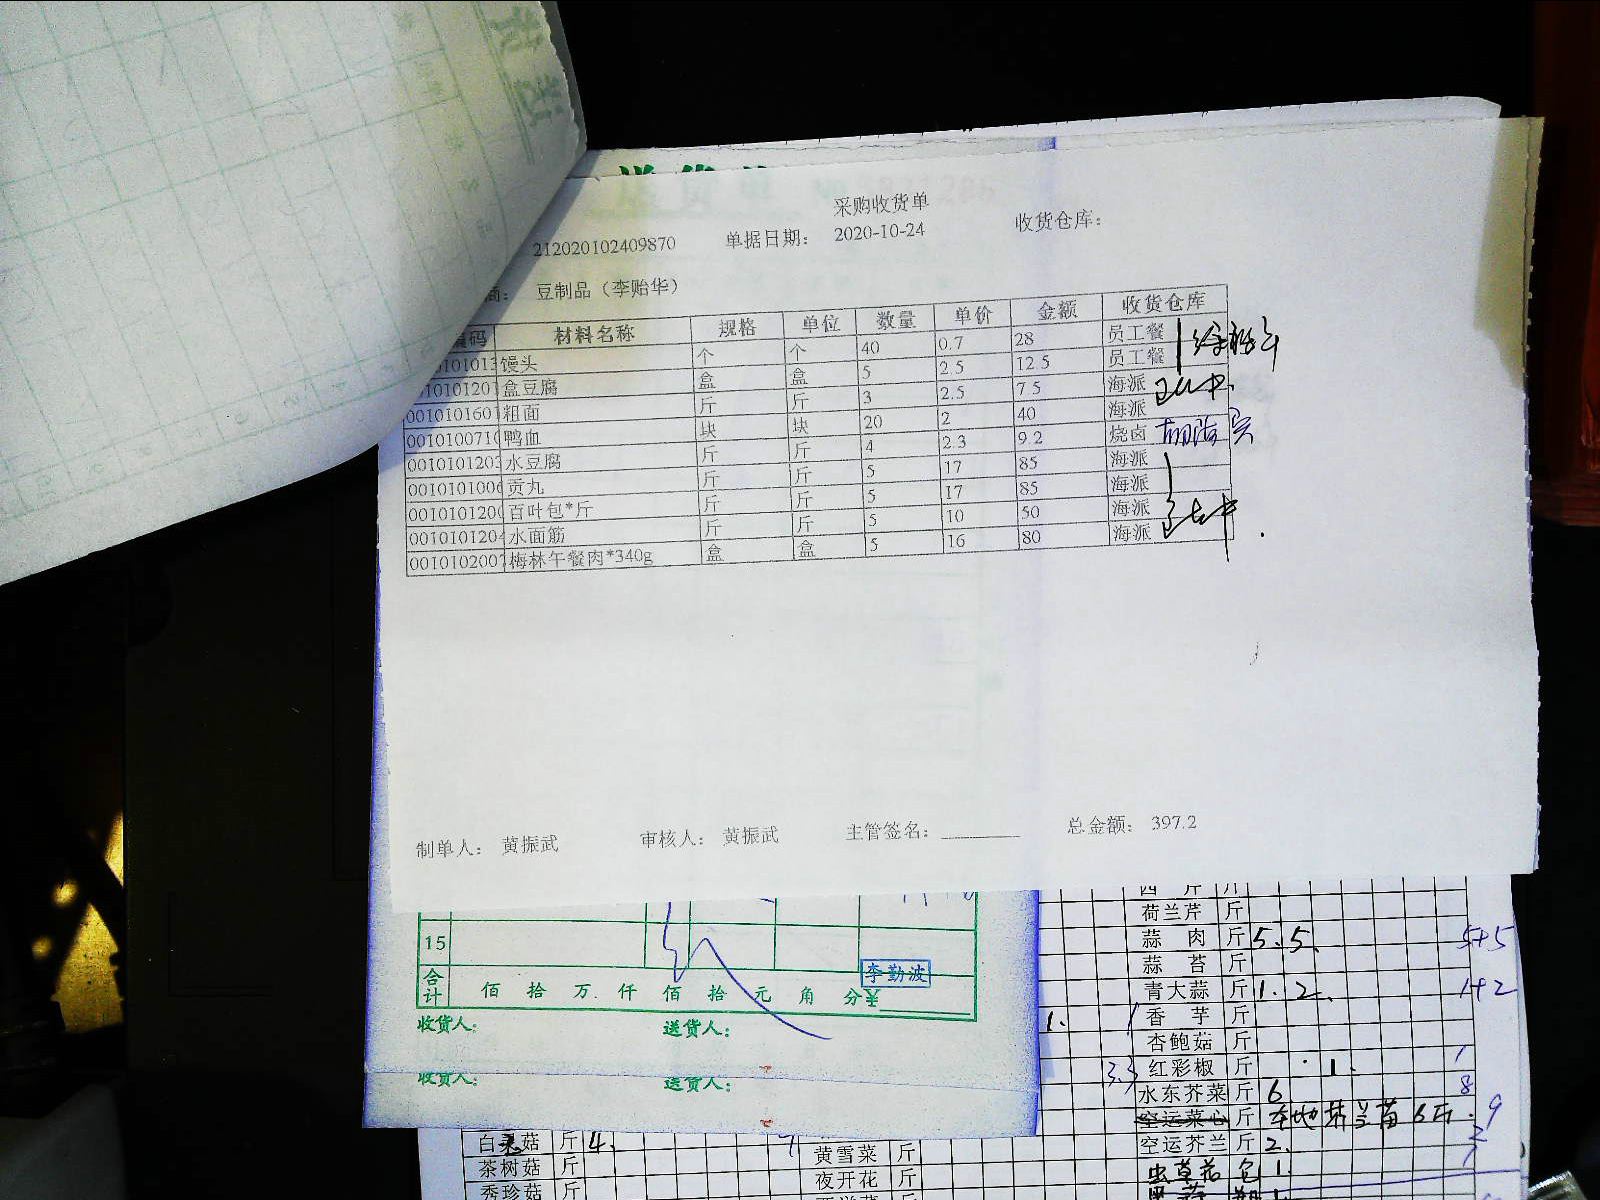 采购收货单
212020102409870 单据日期: 2020-10-24 收货仓库:
商: 豆制品（李贻华）
编码 材料名称 规格 单位 数量 单价 金额 收货仓库
0010101013 馒头 个 个 40 0.7 28 员工餐
0010101201 盒豆腐 盒 盒 5 2.5 12.5 员工餐
0010101601 粗面 斤 斤 3 2.5 7.5 海派
0010100710 鸭血 块 块 20 2 40 海派
0010101203 水豆腐 斤 斤 4 2.3 9.2 烧卤
0010101006 贡丸 斤 斤 5 17 85 海派
0010101200 百叶包*斤 斤 斤 5 17 85 海派
0010101204 水面筋 斤 斤 5 10 50 海派
0010102007 梅林午餐肉*340g 盒 盒 5 16 80 海派
制单人: 黄振武 审核人: 黄振武 主管签名: 总金额: 397.2
15
合计 佰 拾 万 仟 佰 拾 元 角 分 ¥
李勤波
收货人: 送货人:
收货人: 送货人:
西 芹 斤
荷兰芹 斤
蒜 肉 斤 5. 5. 5+5
蒜 苔 斤
青大蒜 斤 1. 2. 1+2
香 芋 斤
杏鲍菇 斤
红彩椒 斤 1. 1
水东芥菜 斤 6 8
空运菜心 斤 本地芥兰苗6斤. 9
空运芥兰 斤 2. 2
虫草花 包 1. 1
白灵菇 斤 4.
茶树菇 斤
秀珍菇 斤
黄雪菜 斤
夜开花 斤